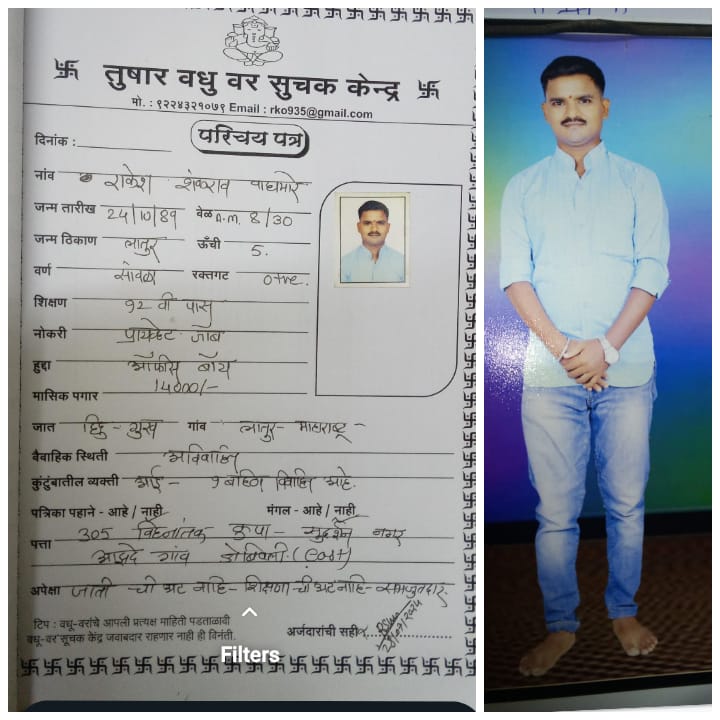 तुषार वधु वर सुचक केन्द्र
मो. : ९२२४३२१०७९ Email : rko935@gmail.com
दिनांक :
परिचय पत्र
नांव राकेश शंकराव वाघमारे
जन्म तारीख 24/10/89 वेळ A.M. 8/30
जन्म ठिकाण लातुर ऊँची 5.
वर्ण सावळा रक्तगट O+ve.
शिक्षण १२ वी पास
नोकरी प्रायव्हेट जॉब
हुद्दा ऑफीस बॉय
मासिक पगार 14000/-
जात हिंदु - गांव लातुर - माहाराष्ट्र -
वैवाहिक स्थिती अविवाहित
कुंटुंबातील व्यक्ती आई - १ बहिण विवाहित आहे.
पत्रिका पहाने - आहे / नाही मंगल - आहे / नाही
पत्ता 305 कृपा - नगर
गांव डोंबिवली. (East)
अपेक्षा जाती ची अट नाहि - शिक्षणा ची अट नाहि - समजुतदार.
टिप : वधू-वरांचे आपली प्रत्यक्ष माहिती पडताळावी
वधू-वर सूचक केंद्र जवाबदार राहणार नाही ही विनंती.
अर्जदारांची सही
Filters